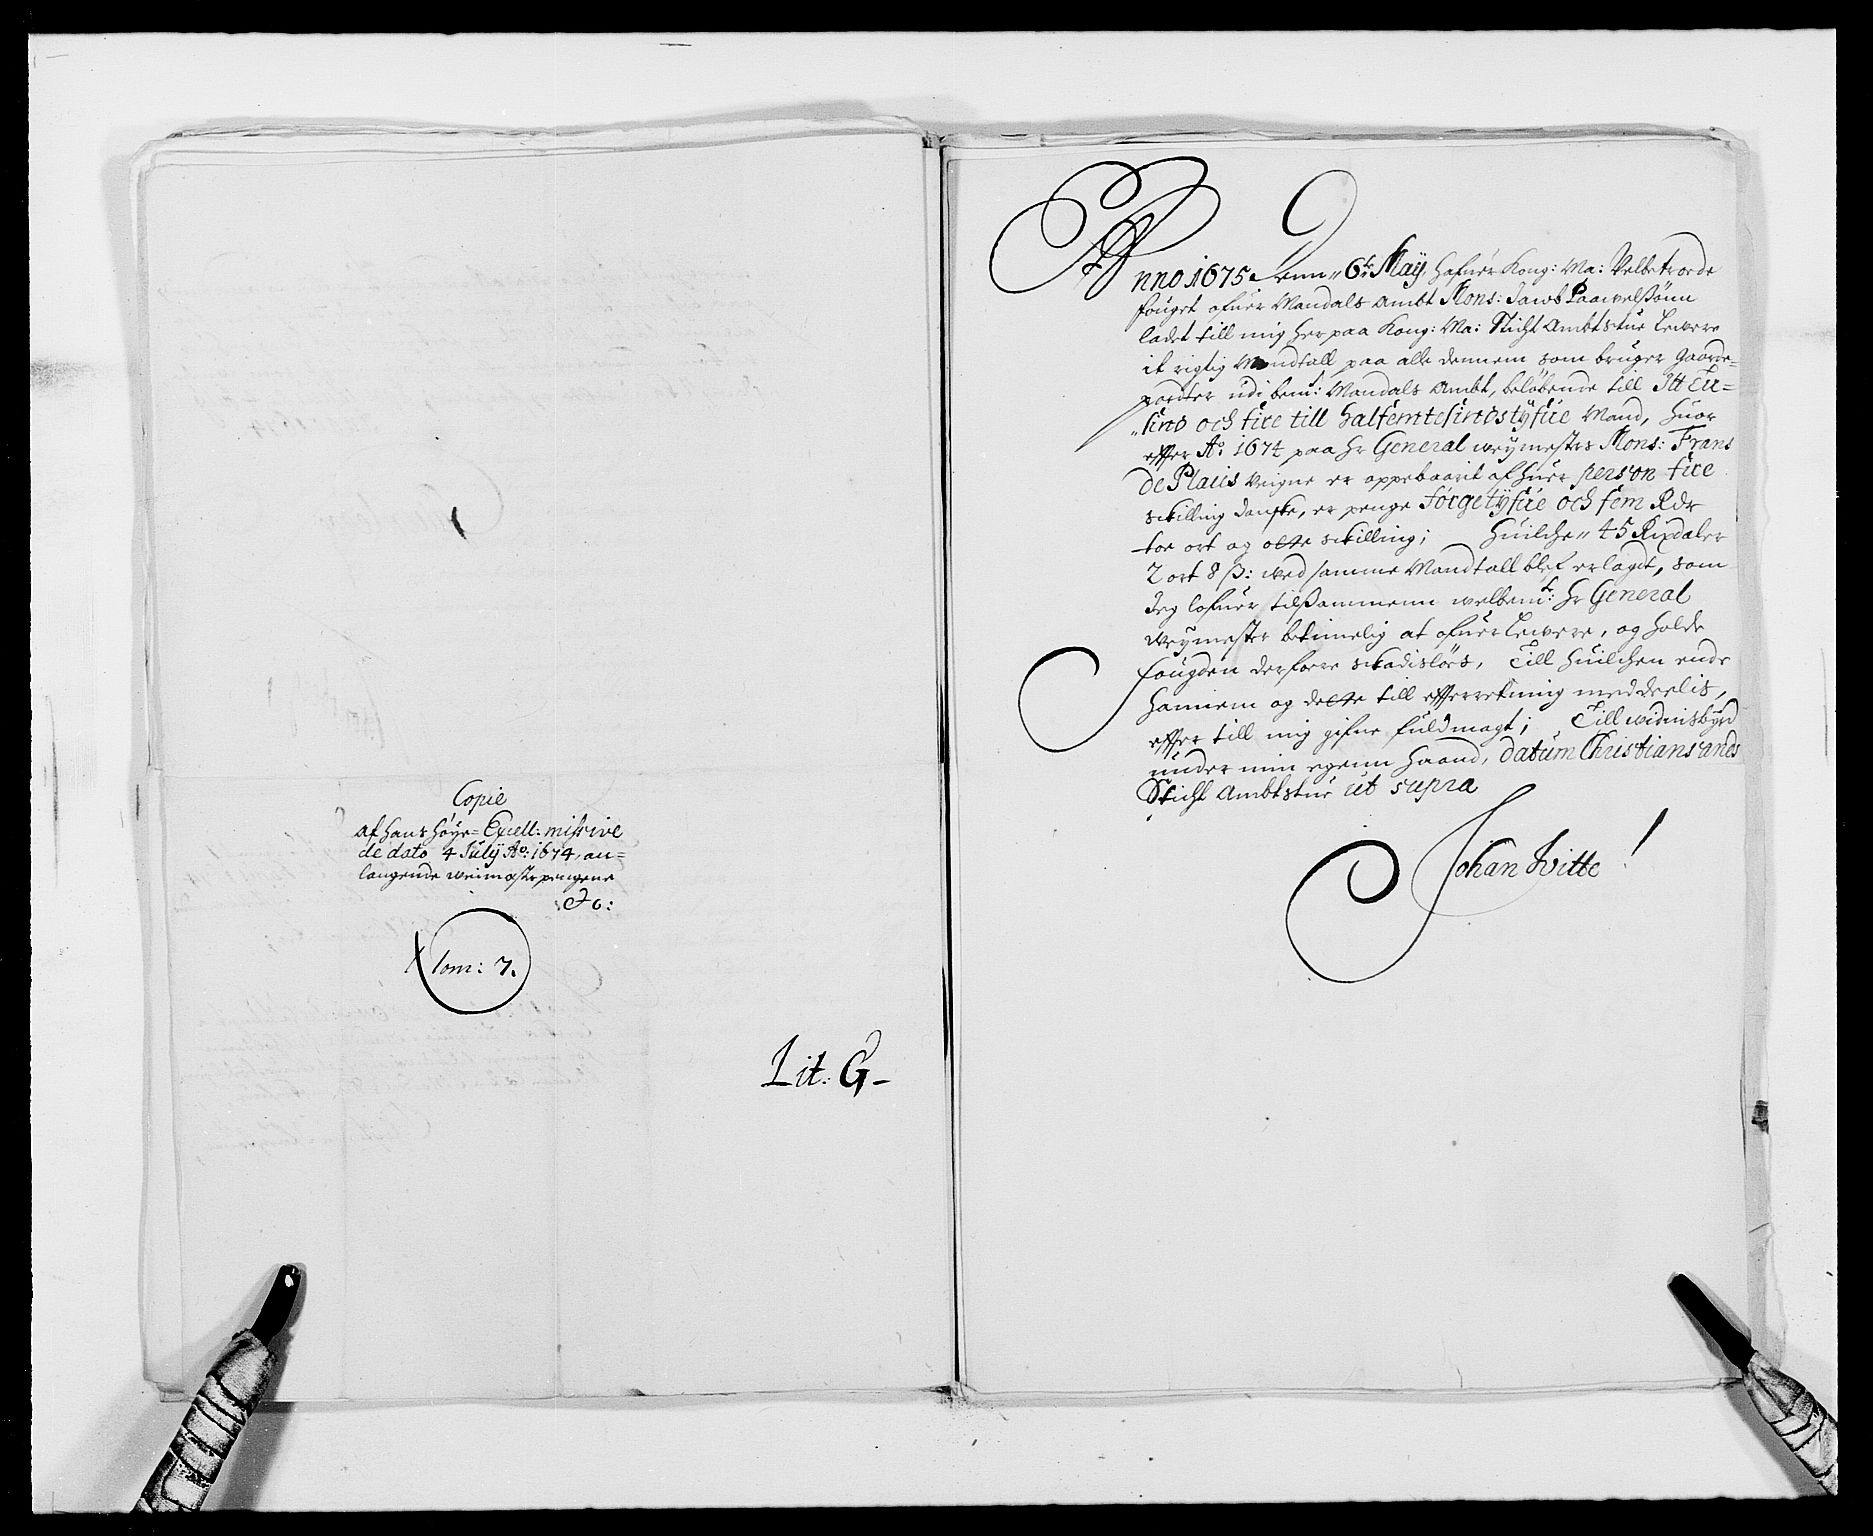 Copie
af Hans Høye= Excell: missive
de dato 4 Julÿ Ao: 1674, an=
langende weimesterpengene
Lit: G-
Anno 1675 denn 6te Maÿ, Hafuer Kong: Ma: Velbetroede
fouget ofuer Mandals Ambt Mons: Jacob Paavelßönn
ladet till mig her paa Kong: Ma: Sticht Ambtstue levere
it rigtig Mandtall paa alle dennem som bruger gaarde=
parter udi bemt: Mandals Ambt, belöbende till Itt Tu=
sind och fire till halfemtesindstÿfue Mand, huor
effter Ao 1674 paa Hr General weÿmesters Mons: Frans
de Plaiis weigne er oppebaarit af huer person fire
skilling danske, er penge Förgetÿfue och fem Rdr
toe ort og otte skilling; Huilche 45 Rixdaler
2 ort 8 β: wed samme Mandtall blef erlagt, som
Jeg lofuer tilßammenn welbemt: Hr General
Weÿmester betimelig at ofuerlevere, og holde
fougden derforre skadislös, Till huilchen ende
hannem og dette till effterretning meddeelis,
effter till mig gifne fuldmagt; Till widnisbÿrd
under min egenn Haand, datum Christiansands
Sticht Ambtstue ut supra
Johan Witte